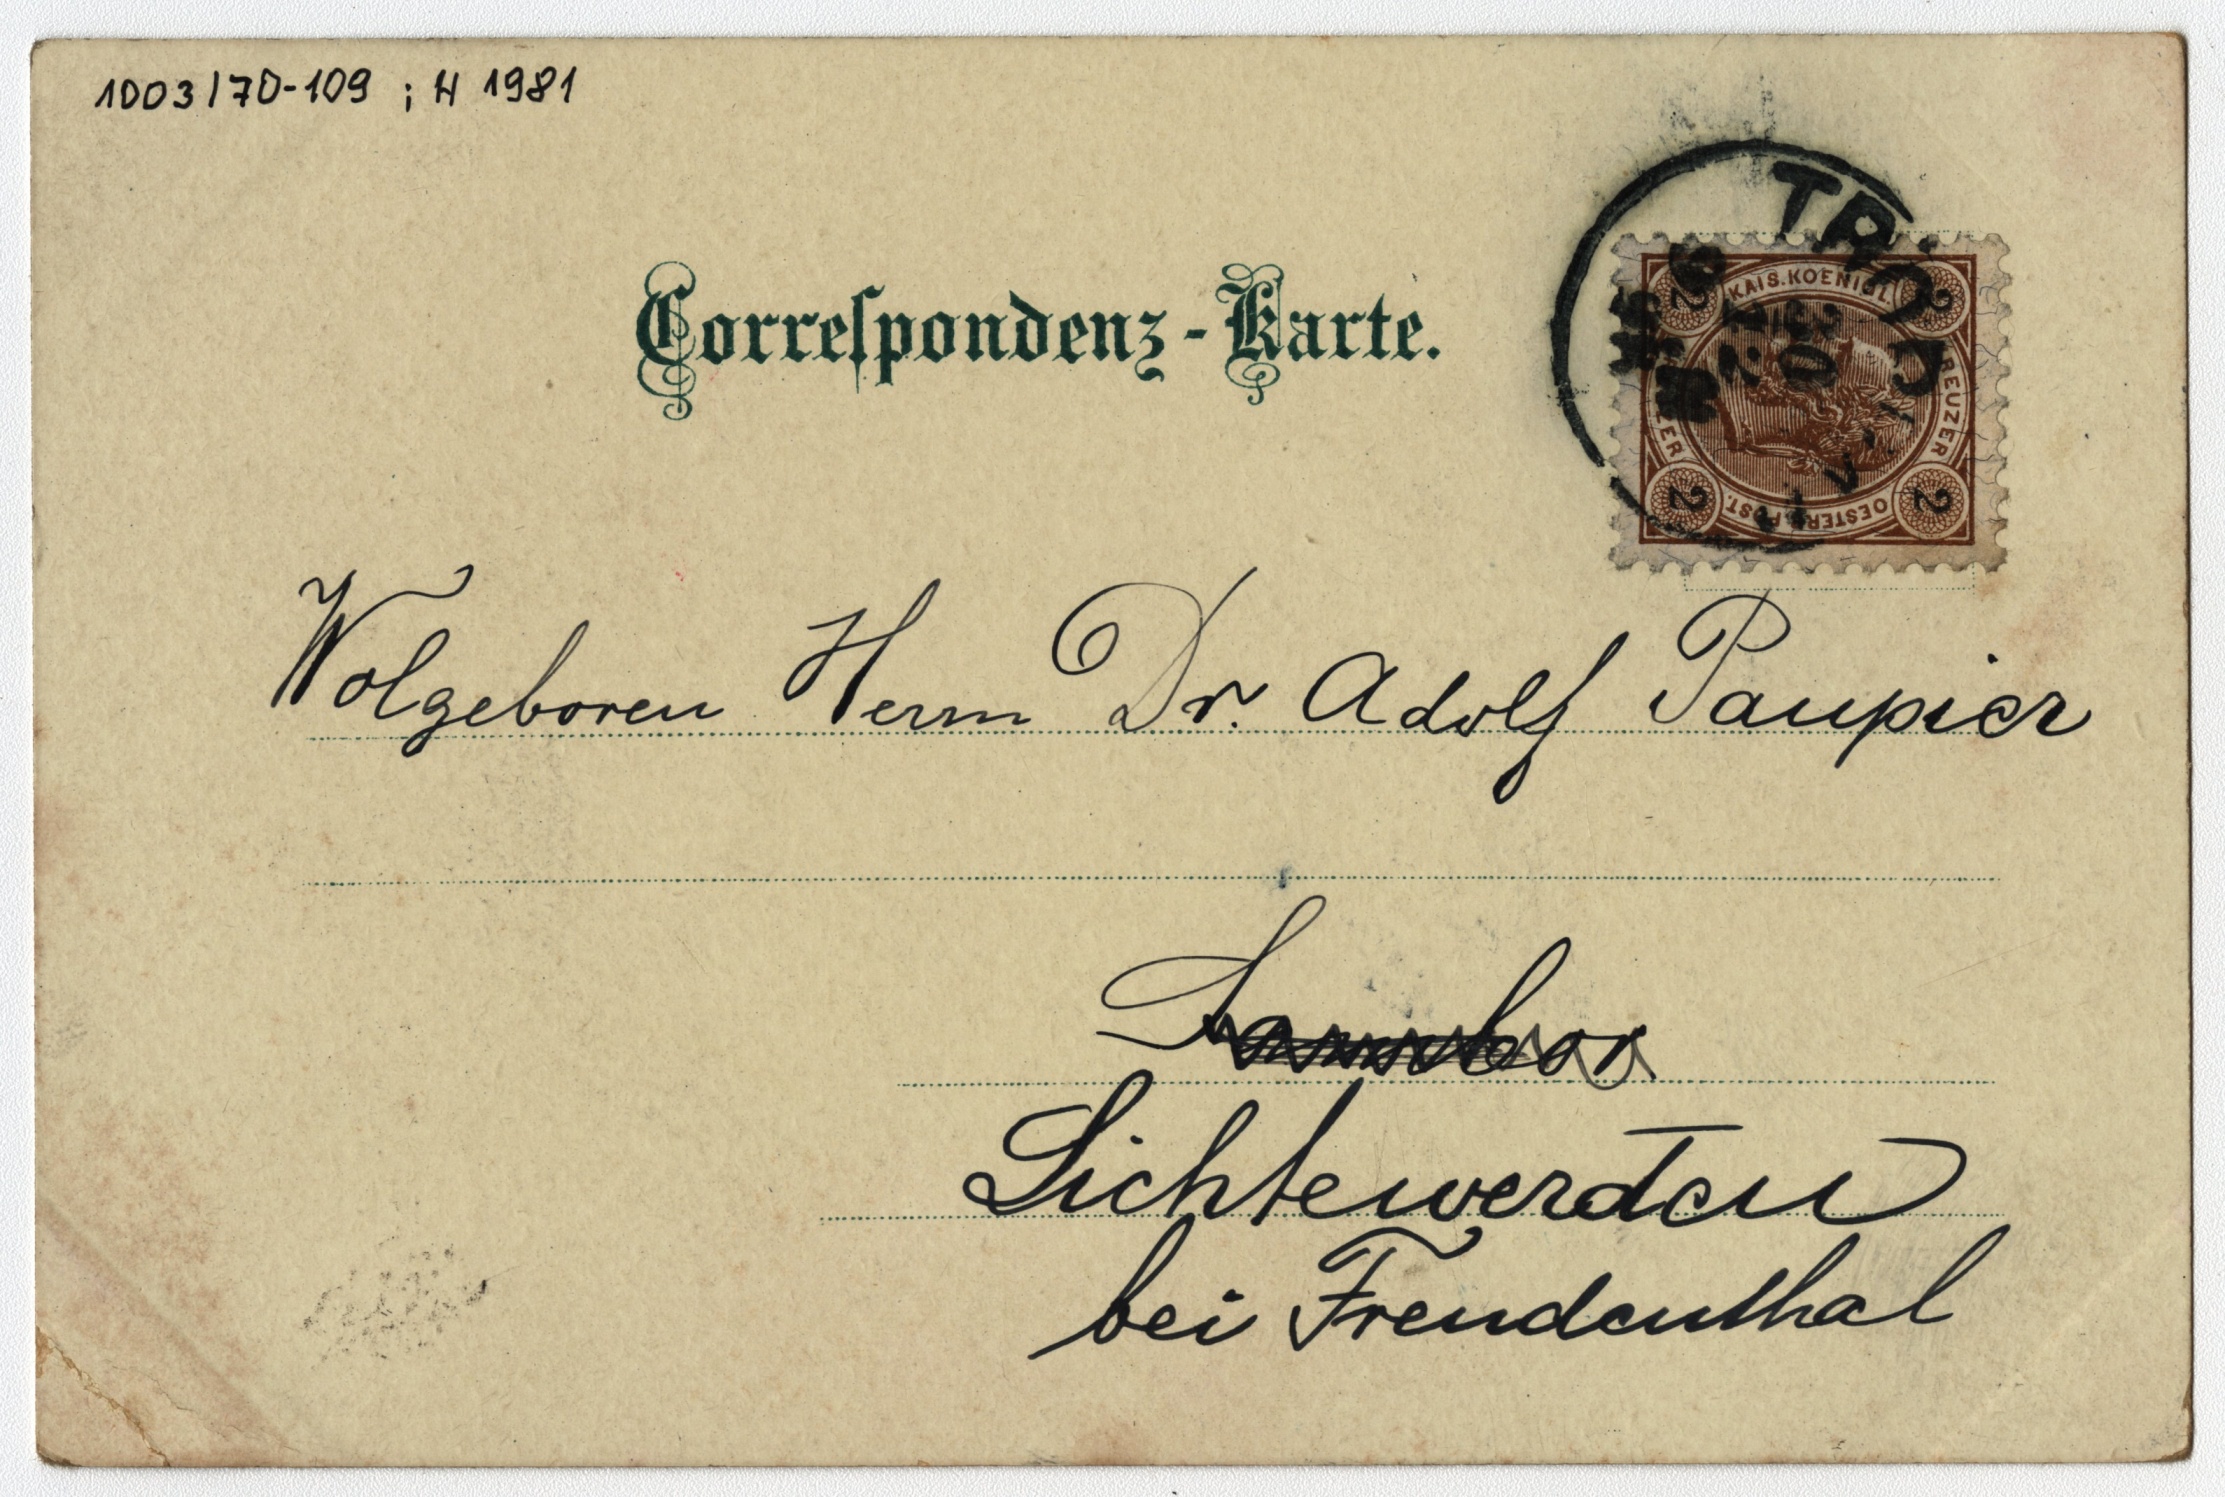 1003/70-109 ; H 1981
Correspondenz-Karte.
KAIS. KOENIGL.
KREUZER
OESTERR. POST.
2 2 2 2
Wolgeboren Herrn Dr. Adolf Paupier
Sambor
Lichtewerden
bei Freudenthal